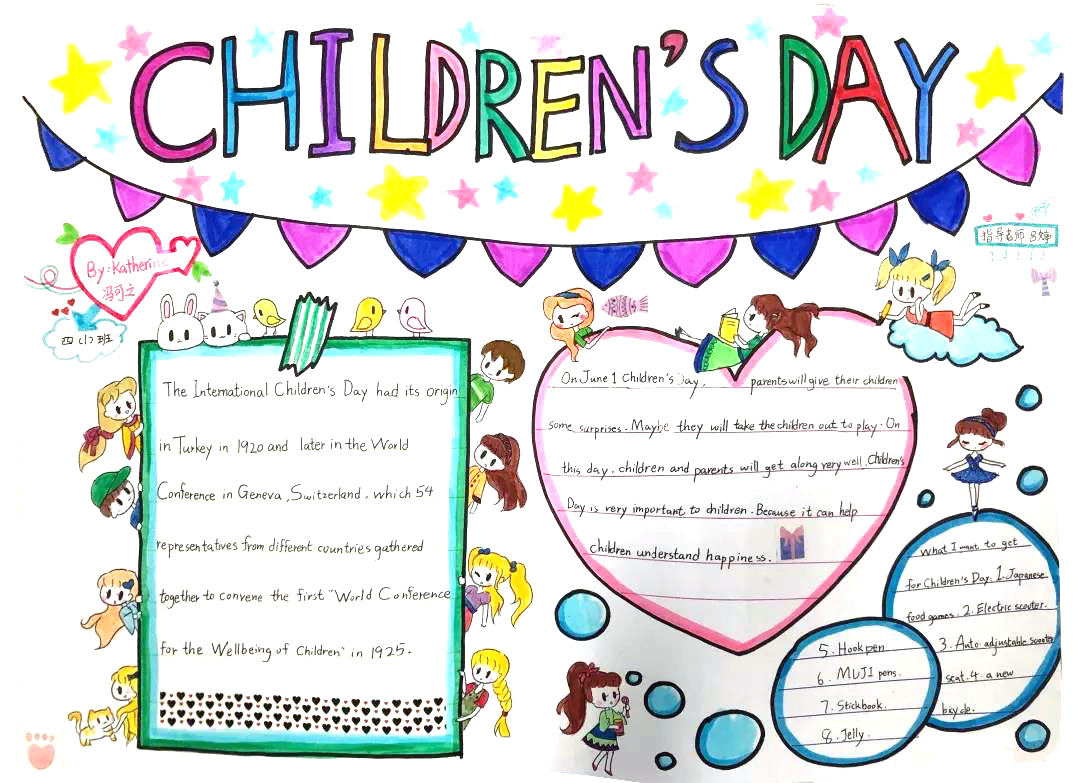 CHILDREN'S DAY
By: Katherine
冯可之
四(1)班
指导老师 吕婷
The International Children's Day had its origin
in Turkey in 1920 and later in the World
Conference in Geneva, Switzerland, which 54
representatives from different countries gathered
together to convene the first "World Conference
for the Wellbeing of Children" in 1925.
On June 1 Children's Day, parents will give their children
some surprises. Maybe they will take the children out to play. On
this day, children and parents will get along very well. Children's
Day is very important to children. Because it can help
children understand happiness.
what I want to get
for Children's Day: 1. Japanese
food games. 2. Electric scooter.
3. Auto adjustable scooter
scat. 4. a new
bicycle.
5. Hook pen
6. MUJI pens.
7. Stickbook.
8. Jelly.